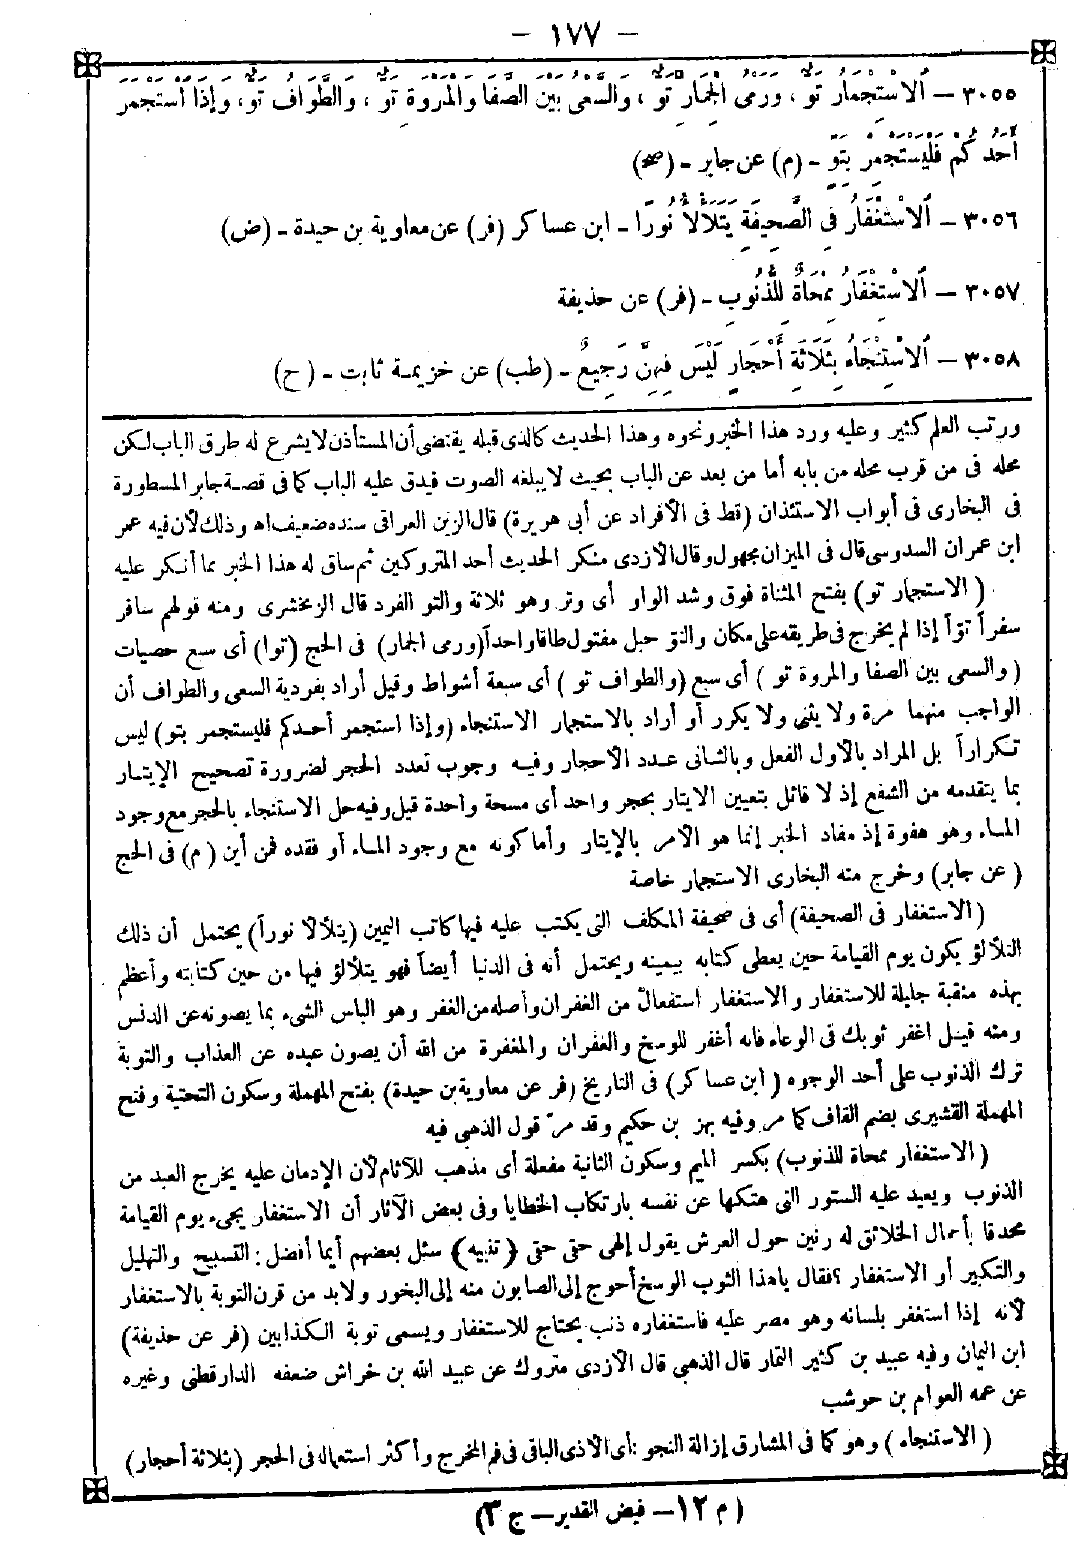 – ١٧٧ –
٣٠٥٥ — اَلِاسْتِجْمَارُ تَوٌّ ، وَرَمْىُ الْجِمَارِ تَوٌّ ، وَالسَّعْىُ بَيْنَ الصَّفَا وَالْمَرْوَةِ تَوٌّ ، وَالطَّوَافُ تَوٌّ، وَإِذَا اسْتَجْمَرَ
أَحَدُكُمْ فَلْيَسْتَجْمِرْ بِتَوٍّ ـ (م) عن جابر ـ (صح)
٣٠٥٦ — اَلِاسْتِغْفَارُ فِى الصَّحِيفَةِ يَتَلَأْلَأُ نُورًا ـ ابن عساكر (فر) عن معاوية بن حيدة ـ (ض)
٣٠٥٧ — اَلِاسْتِغْفَارُ مِمْحَاةٌ لِلذُّنُوبِ ـ (فر) عن حذيفة
٣٠٥٨ — اَلِاسْتِنْجَاءُ بِثَلَاثَةِ أَحْجَارٍ لَيْسَ فِيهِنَّ رَجِيعٌ ـ (طب) عن خزيمة ثابت ـ (ح)
ورتب العلم كثير وعليه ورد هذا الخبر ونحوه وهذا الحديث كالذى قبله يقتضى أن المستأذن لا يشرع له طرق الباب لكن
محله فى من قرب محله من بابه أما من بعد عن الباب بحيث لا يبلغه الصوت فيدق عليه الباب كما فى قصة جابر المسطورة
فى البخارى فى أبواب الاستئذان (قط فى الأفراد عن أبى هريرة) قال الزين العراقى سنده ضعيف اه وذلك لأن فيه عمر
ابن عمران السدوسى قال فى الميزان مجهول وقال الأزدى منكر الحديث أحد المتروكين ثم ساق له هذا الخبر بما أنكر عليه
( الاستجمار تو) بفتح المثناة فوق وشد الواو أى وتر وهو ثلاثة والتو الفرد قال الزمخشرى ومنه قولهم سافر
سفراً تواً إذا لم يخرج فى طريقه على مكان والتو حبل مفتول طاقا واحداً (ورمى الجمار) فى الحج (توا) أى سبع حصيات
( والسعى بين الصفا والمروة تو ) أى سبع (والطواف تو ) أى سبعة أشواط وقيل أراد بفردية السعى والطواف أن
الواجب منهما مرة ولا يثنى ولا يكرر أو أراد بالاستجمار الاستنجاء (وإذا استجمر أحدكم فليستجمر بتو) ليس
تكراراً بل المراد بالأول الفعل وبالثانى عدد الأحجار وفيه وجوب تعدد الحجر لضرورة تصحيح الإيتار
بما يتقدمه من الشفع إذ لا قائل بتعيين الايتار بحجر واحد أى مسحة واحدة قيل وفيه حل الاستنجاء بالحجر مع وجود
الماء وهو هفوة إذ مفاد الخبر إنما هو الأمر بالإيتار وأما كونه مع وجود الماء أو فقده فمن أين (م) فى الحج
( عن جابر) وخرج منه البخارى الاستجمار خاصة
(الاستغفار فى الصحيفة) أى فى صحيفة المكلف التى يكتب عليه فيها كاتب اليمين (يتلألأ نوراً) يحتمل أن ذلك
التلألؤ يكون يوم القيامة حين يعطى كتابه بيمينه ويحتمل أنه فى الدنيا أيضاً فهو يتلألؤ فيها من حين كتابته وأعظم
بهذه منقبة جليلة للاستغفار والاستغفار استفعال من الغفران وأصله من الغفر وهو الباس الشىء بما يصونه عن الدنس
ومنه قيل اغفر ثوبك فى الوعاء فانه أغفر للوسخ والغفران والمغفرة من الله أن يصون عبده عن العذاب والتوبة
ترك الذنوب على أحد الوجوه ( ابن عساكر) فى التاريخ (فر عن معاوية بن حيدة) بفتح المهملة وسكون التحتية وفتح
المهملة القشيرى بضم القاف كما مر وفيه بهز بن حكيم وقد مرّ قول الذهبى فيه
( الاستغفار ممحاة للذنوب) بكسر الميم وسكون الثانية مفعلة أى مذهب للآثام لأن الإدمان عليه يخرج العبد من
الذنوب ويعيد عليه الستور التى هتكها عن نفسه بارتكاب الخطايا وفى بعض الآثار أن الاستغفار يجىء يوم القيامة
محدقا بأعمال الخلائق له رنين حول العرش يقول إلهى حقى حقى (تنبيه) سئل بعضهم أيما أفضل : التسبيح والتهليل
والتكبير أو الاستغفار ؟ فقال يا هذا الثوب الوسخ أحوج إلى الصابون منه إلى البخور ولا بد من قرن التوبة بالاستغفار
لأنه إذا استغفر بلسانه وهو مصر عليه فاستغفاره ذنب يحتاج للاستغفار ويسمى توبة الكذابين (فر عن حذيفة)
ابن اليمان وفيه عبيد بن كثير التمار قال الذهبى قال الأزدى متروك عن عبيد الله بن خراش ضعفه الدارقطنى وغيره
عن عمه العوام بن حوشب
( الاستنجاء ) وهو كما فى المشارق إزالة النجو : أى الأذى الباقى فى فم المخرج وأكثر استعماله فى الحجر (بثلاثة أحجار)
( م ١٢ — فيض القدير — ج ٣)